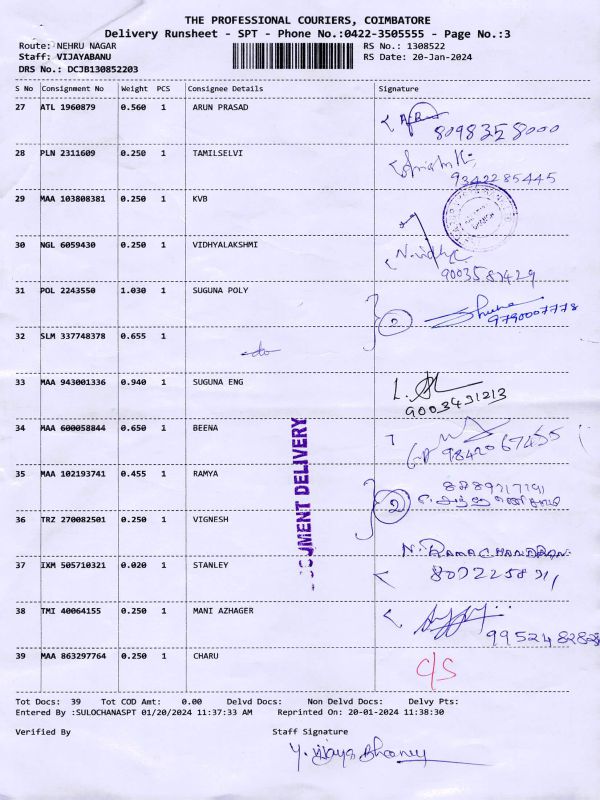 THE PROFESSIONAL COURIERS, COIMBATORE
Delivery Runsheet - SPT - Phone No.:0422-3505555 - Page No.:3
Route: NEHRU NAGAR RS No.: 1308522
Staff: VIJAYABANU RS Date: 20-Jan-2024
DRS No.: DCJB130852203
S No Consignment No Weight PCS Consignee Details Signature
27 ATL 1960879 0.560 1 ARUN PRASAD
8098358000
28 PLN 2311609 0.250 1 TAMILSELVI
9342285445
29 MAA 103808381 0.250 1 KVB
30 NGL 6059430 0.250 1 VIDHYALAKSHMI N.vidhya
9003587429
31 POL 2243550 1.030 1 SUGUNA POLY 2
9790007778
32 SLM 337748378 0.655 1
33 MAA 943001336 0.940 1 SUGUNA ENG
9003491213
34 MAA 600058844 0.650 1 BEENA
9842067455
35 MAA 102193741 0.455 1 RAMYA 2
36 TRZ 270082501 0.250 1 VIGNESH
N. RAMACHANDRAN
37 IXM 505710321 0.020 1 STANLEY
38 TMI 40064155 0.250 1 MANI AZHAGER
9952482828
39 MAA 863297764 0.250 1 CHARU C/S
UMENT DELIVERY
Tot Docs: 39 Tot COD Amt: 0.00 Delvd Docs: Non Delvd Docs: Delvy Pts:
Entered By :SULOCHANASPT 01/20/2024 11:37:33 AM Reprinted On: 20-01-2024 11:38:30
Verified By Staff Signature